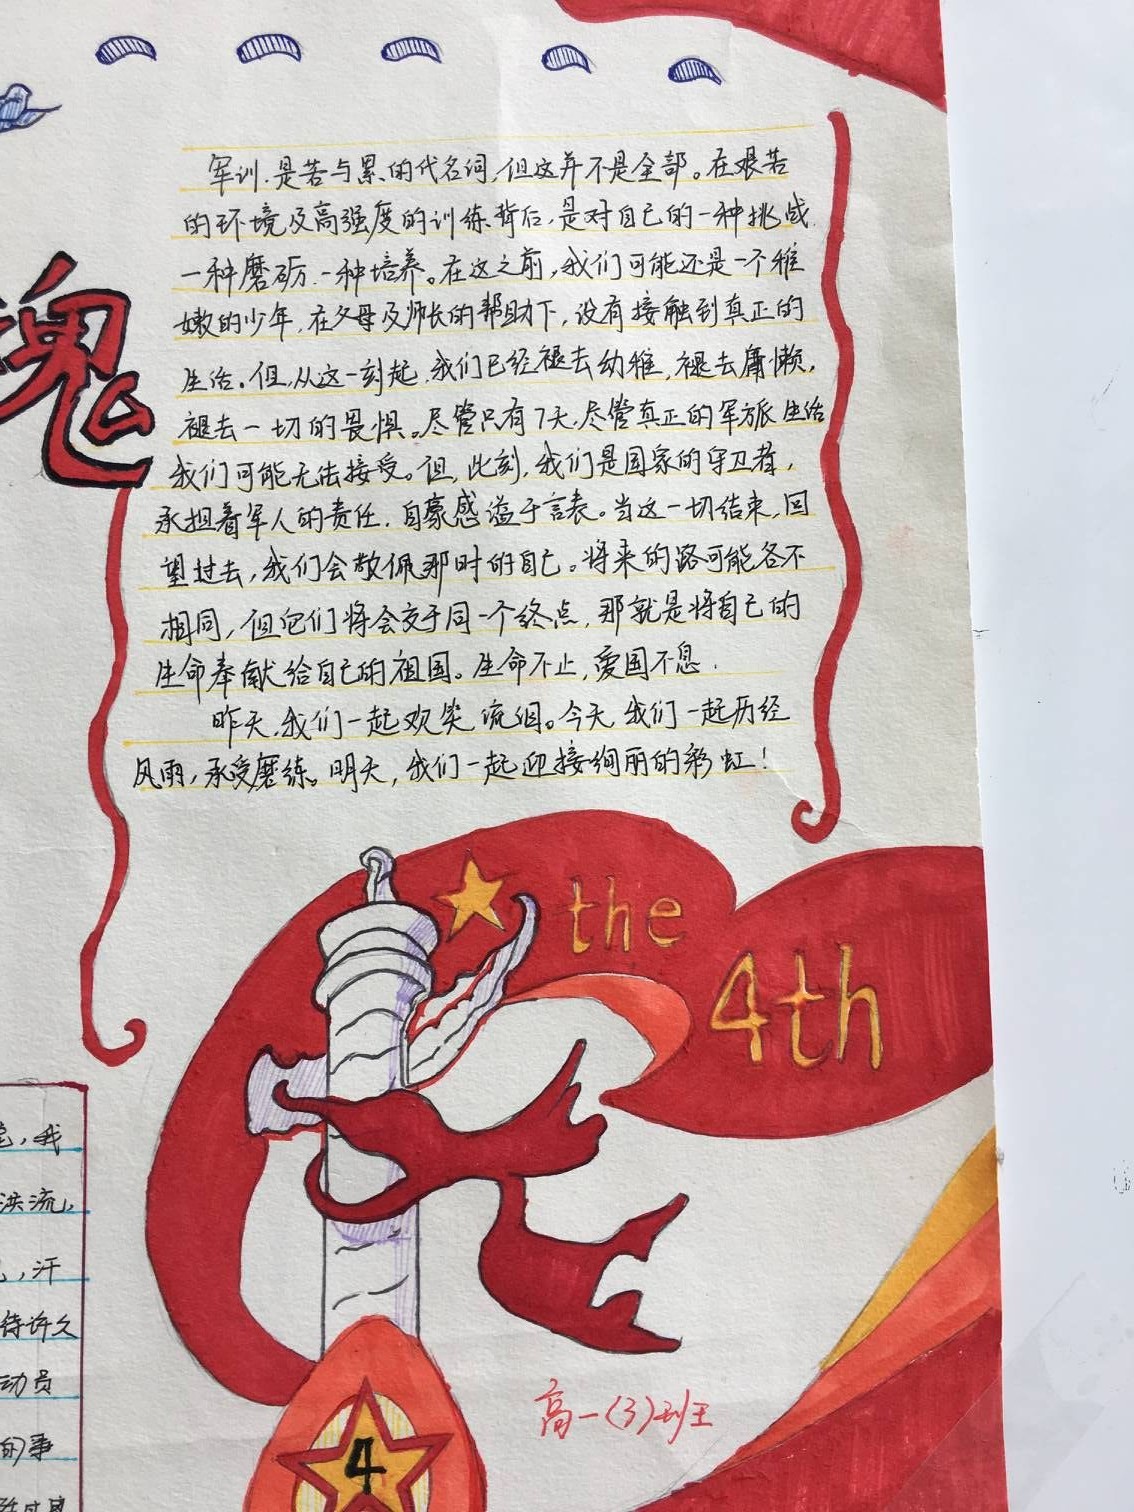 魂
军训.是苦与累的代名词,但这并不是全部。在艰苦
的环境及高强度的训练背后,是对自己的一种挑战.
一种磨砺.一种培养。在这之前,我们可能还是一个稚
嫩的少年,在父母及师长的帮助下,没有接触到真正的
生活。但,从这一刻起,我们已经褪去幼稚,褪去庸懒,
褪去一切的畏惧。尽管只有7天,尽管真正的军旅生活
我们可能无法接受。但,此刻,我们是国家的守卫者,
承担着军人的责任,自豪感溢于言表。当这一切结束,回
望过去,我们会敬佩那时的自己。将来的路可能各不
相同,但它们将会交于同一个终点,那就是将自己的
生命奉献给自己的祖国。生命不止,爱国不息.
昨天,我们一起欢笑流泪。今天,我们一起历经
风雨,承受磨练。明天,我们一起迎接绚丽的彩虹!
the
4th
,我
洪流,
,汗
待许久
动员
的事
4
高一(3)班王